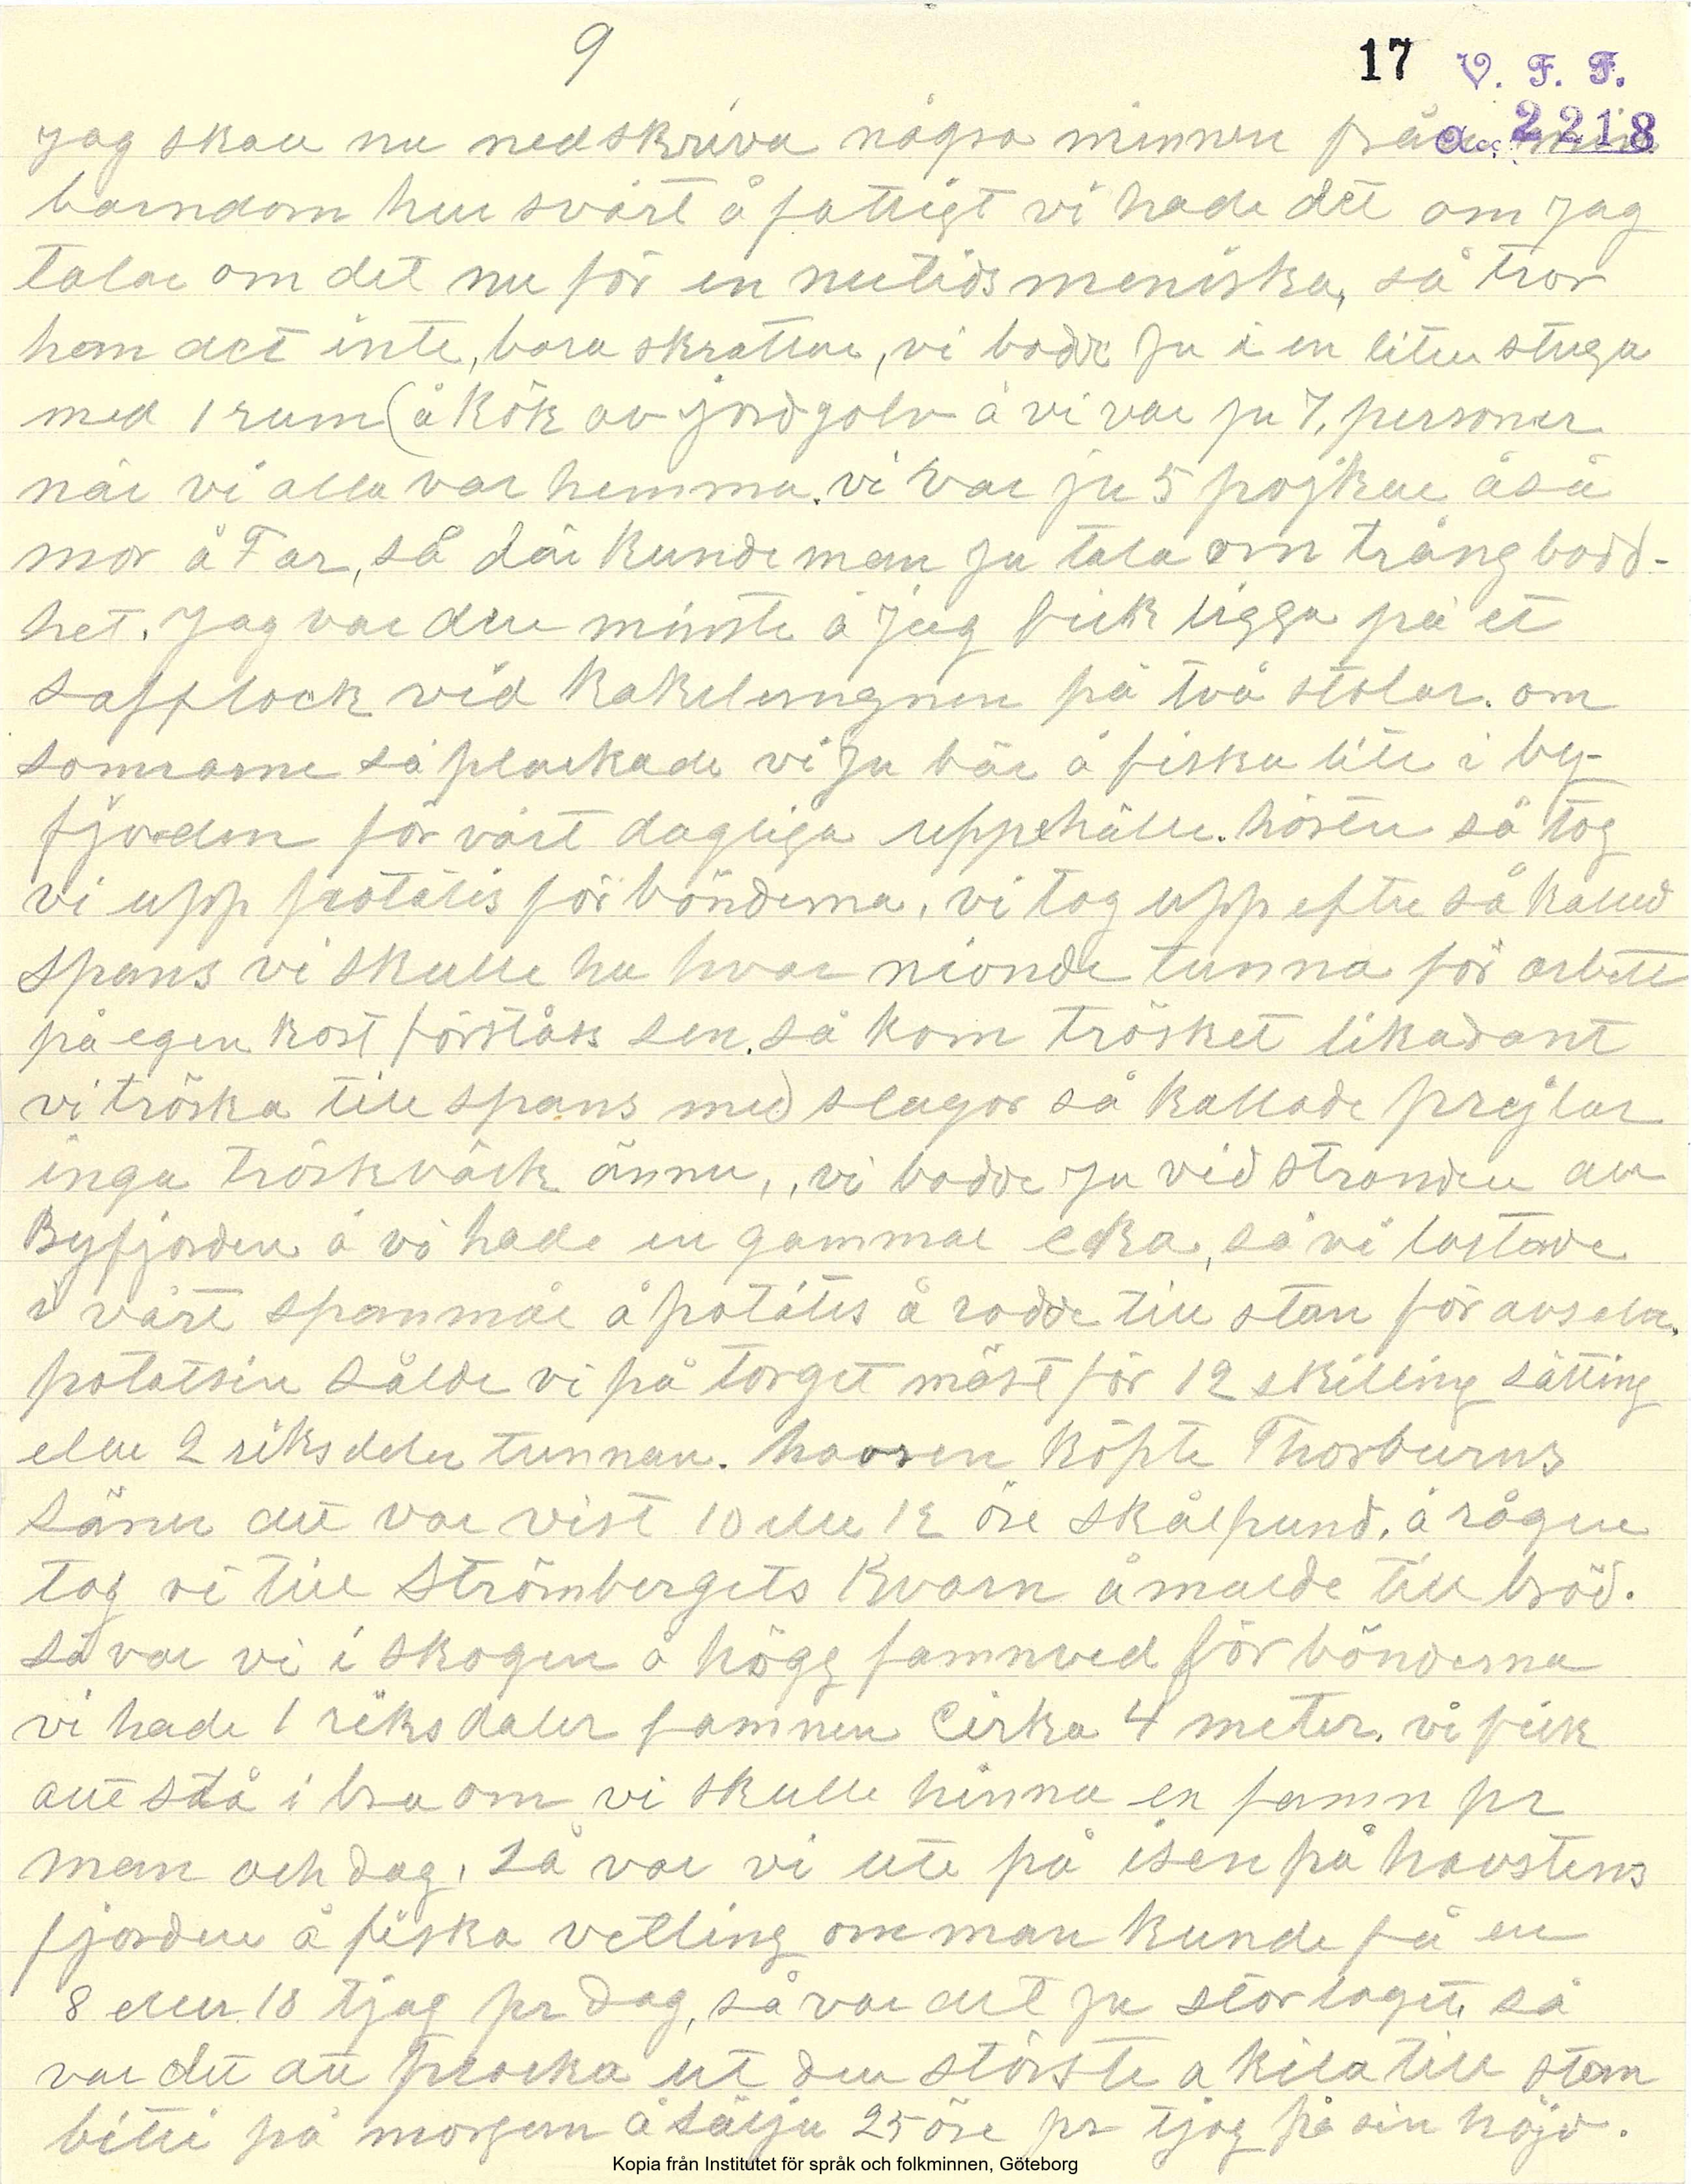 9
17 V. F. F.
2218
Jag skall nu nedskriva några minnen från min
barndom hur svårt å fattigt vi hade det om jag
talar om det nu för en nutids meniska, så tror
han det inte, bara skrattar, vi bodde ju i en liten stuga
med 1 rum (å kök av jordgolv å vi var ju 7, personer
när vi alla var hemma. vi var ju 5 pojkar åså
mor å Far, så där kunde man ju tala om trångbodd-
het. Jag var den minste å jag fick ligga på et
sofflock vid kakelungnen på två stolar. om
somrarne så plockade vi ju bär å fiska lite i by-
fjorden för vårt dagliga uppehälle. hösten så tog
vi upp potatis för bönderna, vi tog upp efter så kalled
spans vi skulle ha hvar nionde tunna för arbete
på egen kost förståss sen. så kom trösket likadant
vi tröska till spans med slagor så kallade prejlar
inga tröskvärk ännu,, vi bodde ju vid stranden av
Byfjorden å vi hade en gammal eka, så vi lastade
i vårt spanmål å potatis å rodde till stan för avsalu.
potatsin sålde vi på torget mäst för 12 skilling sätting
eller 2 riksdaler tunnan. havren köpte Thorburns
sänn det var vist 10 eller 12 öre skålpund, å rågen
tog vi till Strömbergets kvarn å malde till bröd.
så var vi i skogen å högg famnved för bönderna
vi hade 1 riksdaler famnen Cirka 4 meter. vi fick
att stå i bra om vi skulle hinna en famn pr
man och dag, så var vi ute på isen på havstens
fjorden å fiska vetling om man kunde få en
8 eller 10 tjog pr dag, så var det ju storlaget, så
var det att plocka ut den störste a kila till stan
bitti på morgen å sälja 25 öre pr tjog på sin höjd.
Kopia från Institutet för språk och folkminnen, Göteborg